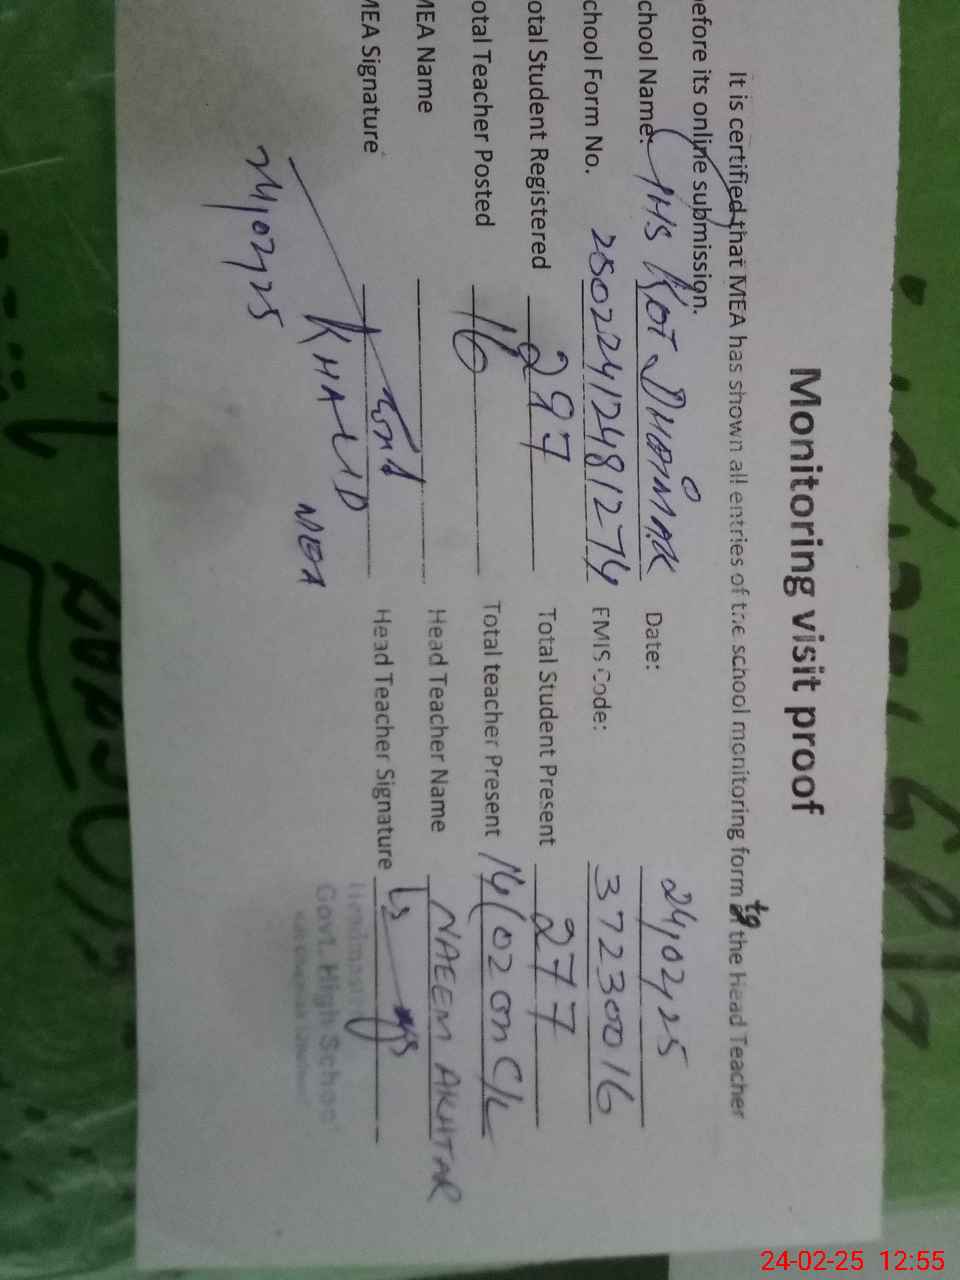 Monitoring visit proof
It is certified that MEA has shown all entries of the school monitoring form to the Head Teacher
before its online submission.
chool Name: GHS KOT DHAMAK Date: 24,02,25
chool Form No. 250224124812774 EMIS Code: 37230016
otal Student Registered 297 Total Student Present 277
otal Teacher Posted 16 Total teacher Present 14(02 on C/L
MEA Name Head Teacher Name NAEEM AKHTAR
MEA Signature Head Teacher Signature
KHALID MEA
24,02,25
Headmaster
Govt. High School
24-02-25 12:55